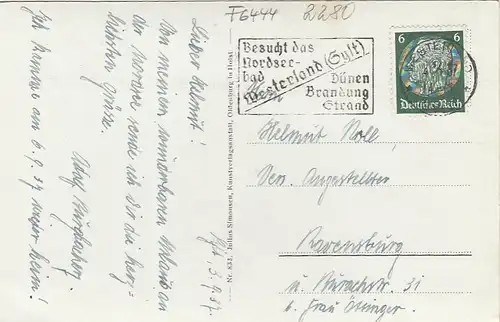 F6444
2280
Besucht das
Nordsee-
bad
Westerland (Sylt)
Dünen
Brandung
Strand
6
6
Deutsches Reich
Sylt, 3.9.37.
Lieber Helmut!
Von meinem wunderbaren Urlaub an
der Nordsee sende ich dir die herz-
lichsten Grüsse.
Adolf
Ich komme am 6.9.37 wieder heim!
Nr. 833. Julius Simonsen, Kunstverlagsanstalt, Oldenburg in Holst.
Helmut Noll,
Ver. Angestellter
Ravensburg
31
b. Frau